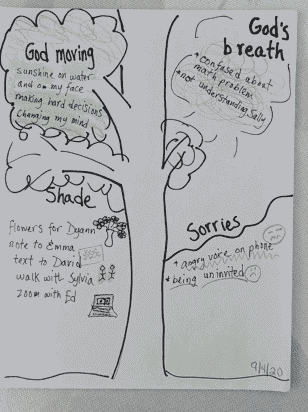 God moving
sunshine on water
and on my face
making hard decisions
changing my mind
God's
breath
* confused about
math problem
* not understanding Sally
Shade
flowers for Dyann
note to Emma
text to David
walk with Sylvia
zoom with Ed
Sorries
* angry voice on phone
* being uninvited
9/4/20